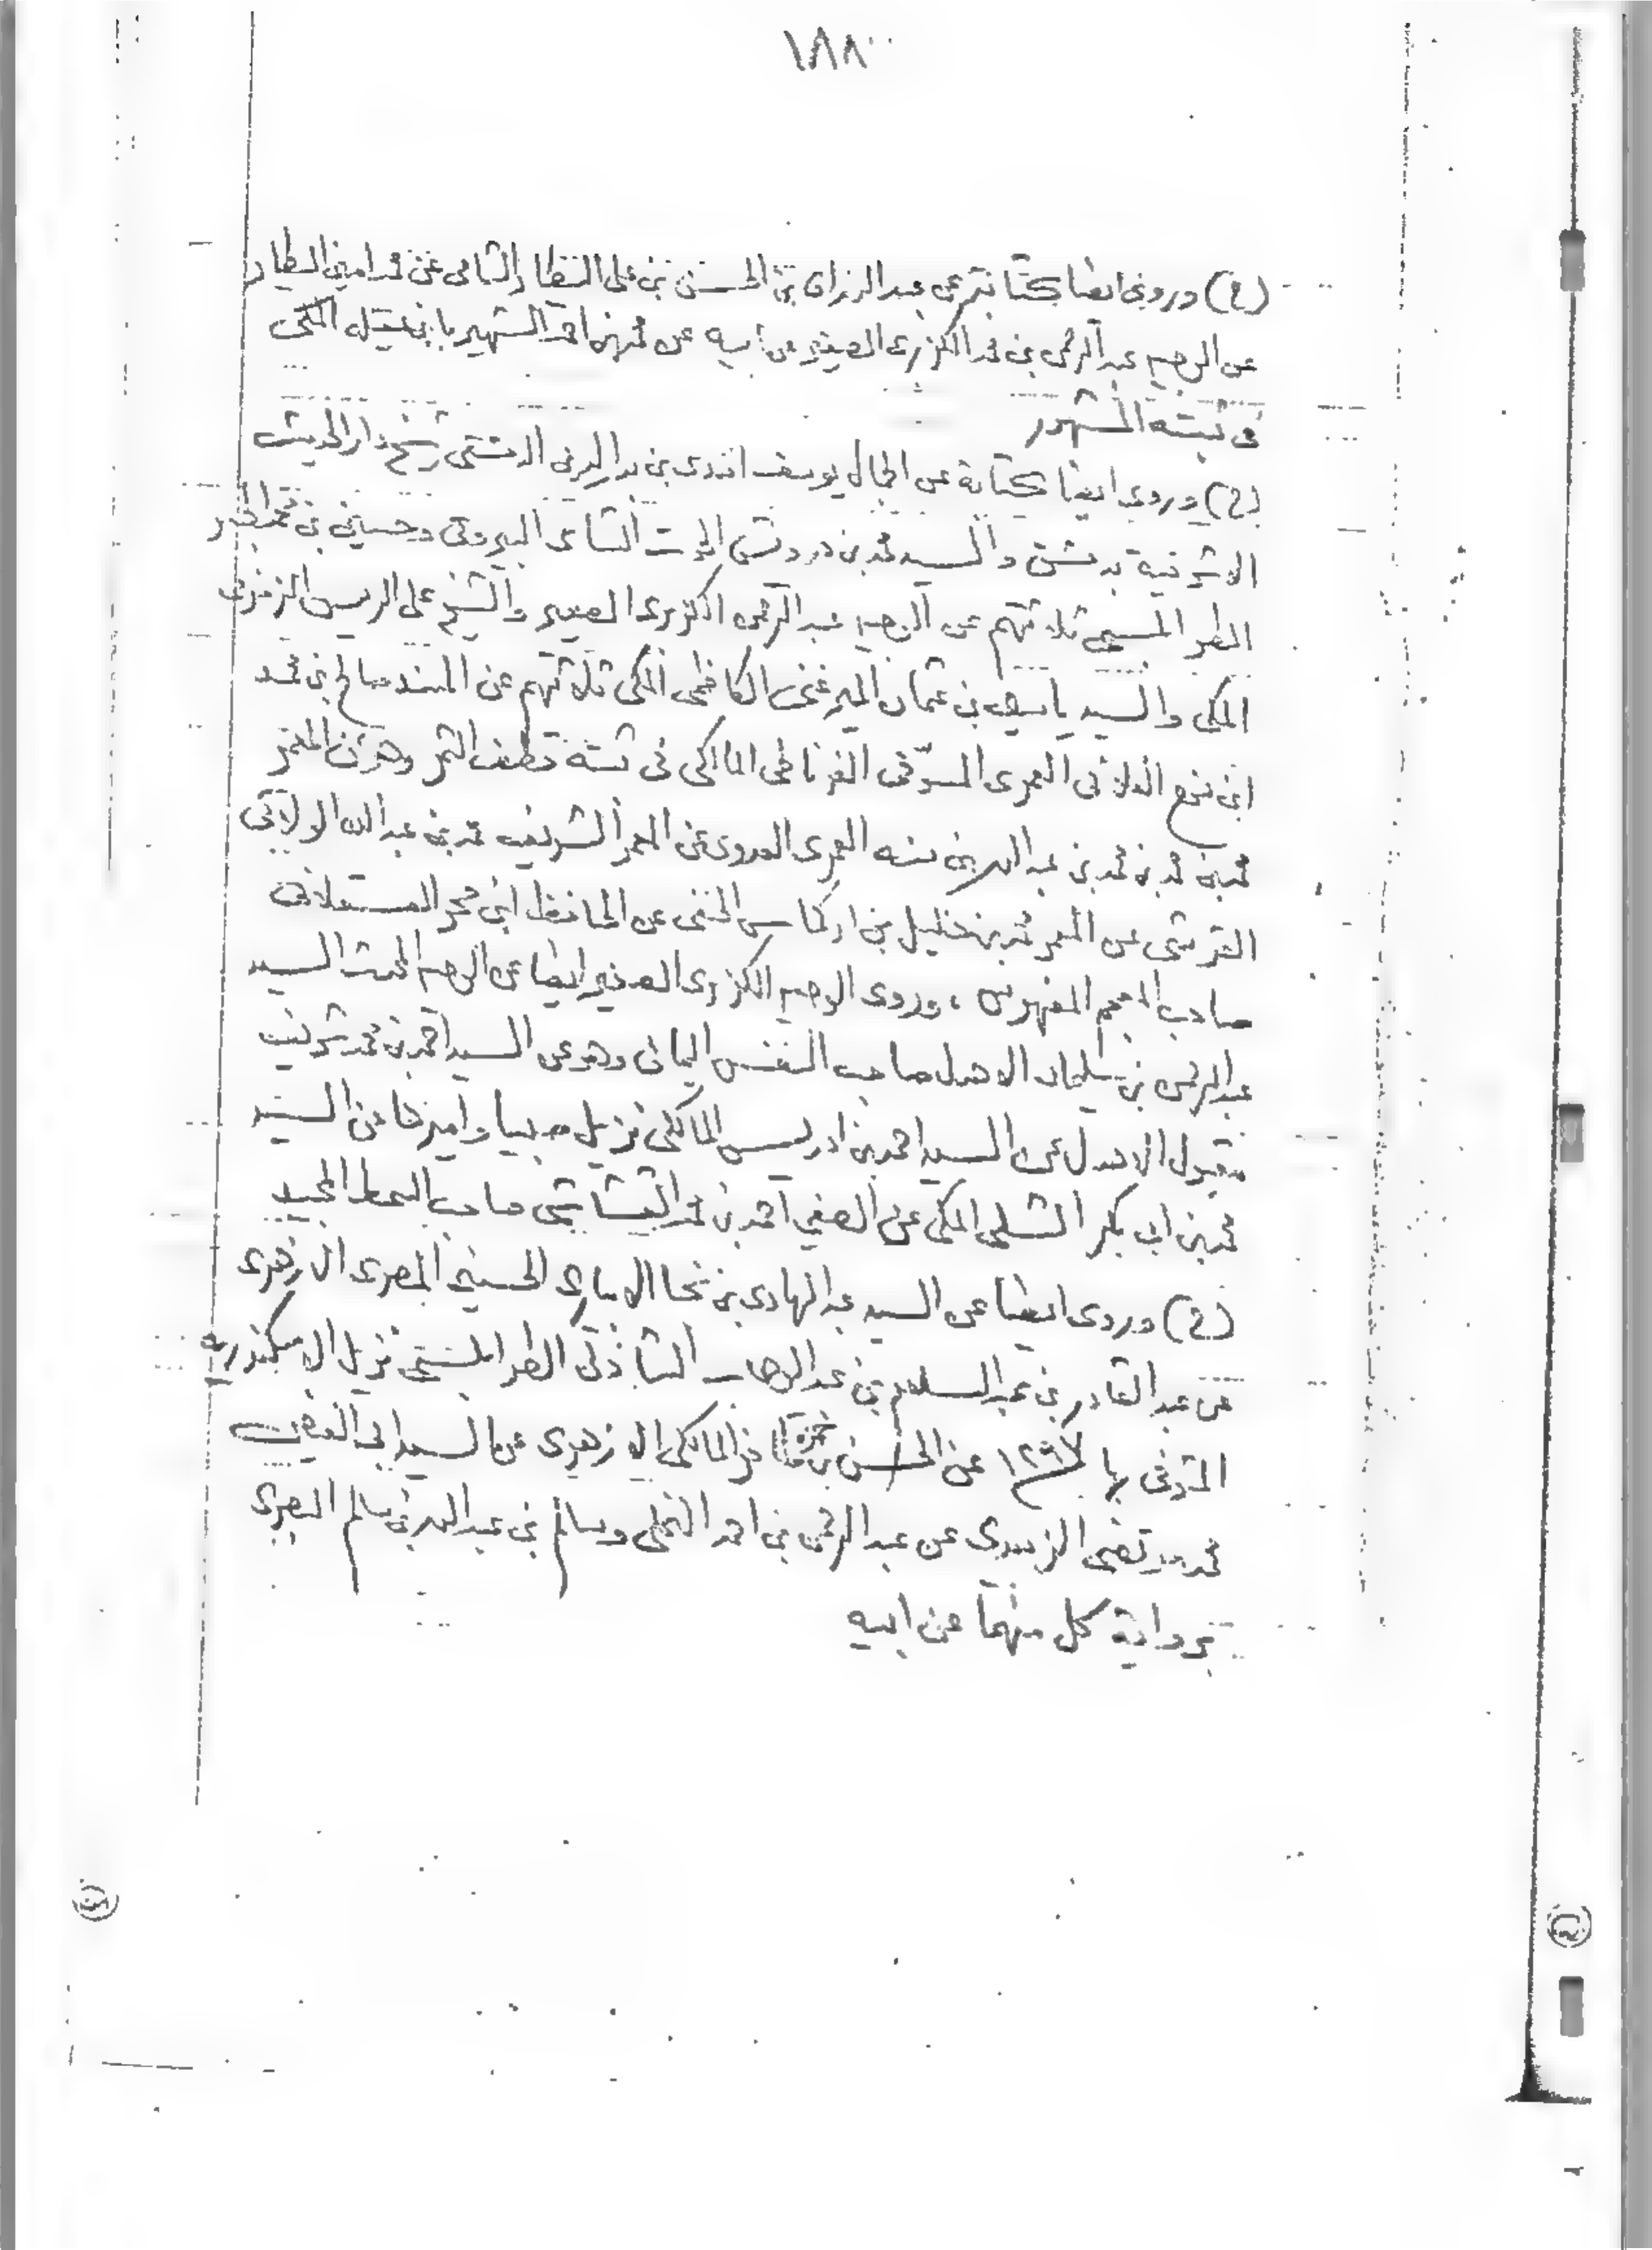 ١٨٨
(ح) وروى ايضا كتابة عن عبد الرزاق بن الحسن بن علي البيطار الشامي عن محمد امين البيطار
عن الوجيه عبد الرحمن بن محمد الكزبرى الصغير عن ابيه عن محمد بن احمد الشهير بابن عقيله المكي
في ثبته المشهور
(ح) وروى ايضا كتابة عن الجمال يوسف افندى بن بدر الدين الدمشقي شيخ دار الحديث
الاشرفية بدمشق والسيد محمد بن درويش الحوت الشامي البيروتي وحسين بن محمد الجسر
الطرابلسي ثلاثتهم عن الوجيه عبد الرحمن الكزبرى الصغير والشيخ على الريس الزمزمى
المكي والسيد ياسين بن عثمان الميرغني الكاظمى المكي ثلاثتهم عن المسند صالح بن محمد
ابن نوح الفلاني العمرى المسوفي الغرناطي المالكي في ثبته قطف الثمر وهو عن المعمر
محمد بن محمد بن محمد بن عبد الله بن سنه العمرى عن المعمر الشريف محمد بن عبد الله الولاتي
القرشي عن المعمر محمد بن خليل بن اركماس الحنفي عن الحافظ ابن حجر العسقلاني
صاحب المعجم المفهرس ، وروى الوجيه الكزبرى الصغير ايضا عن الوجيه المحدث السيد
عبد الرحمن بن سليمان الاهدل صاحب النفس اليماني وهو عن السيد احمد بن محمد شريف
مقبول الاهدل عن السيد احمد بن ادريس المالكي نزيل صبيا واميرها عن السيد
محمد بن ابي بكر الشلي المكي عن الصفي احمد بن محمد القشاشي صاحب السمط المجيد
(ح) وروى ايضا عن السيد عبد الهادى بن نجا الابيارى الحسيني المصرى الازهرى
عن عبد القادر بن عبد السلام بن عبد الوهاب الشاذلي الطرابلسي نزيل الاسكندرية
المتوفى بها عن الحسن بن المالكي الازهرى عن السيد ابى الفيض
محمد مرتضى الزبيدى عن عبد الرحمن بن احمد النخلي وسالم بن عبد الله بن سالم البصرى
برواية كل منهما عن ابيه